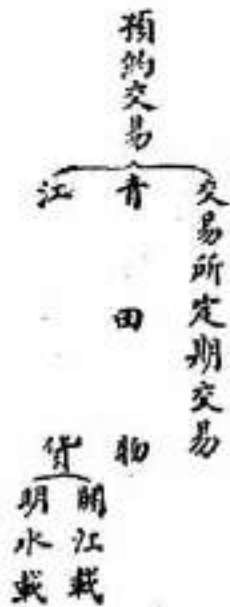 預約交易
交易所定期交易
青田物
江貨
開江載
明水載